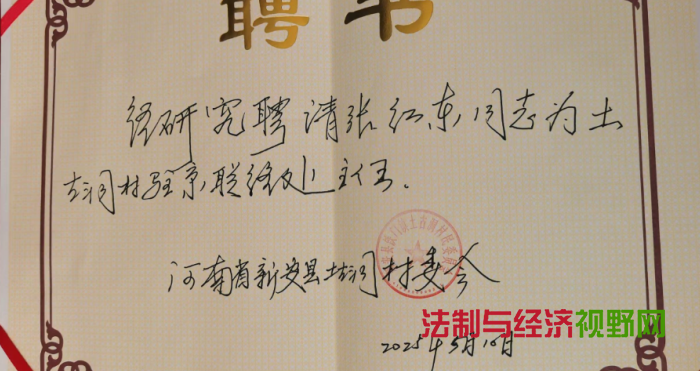 聘书
经研究聘请张红东同志为土
古洞村驻京联络处主任.
河南省新安县土古洞村委会
法制与经济视野网
2025年5月10日